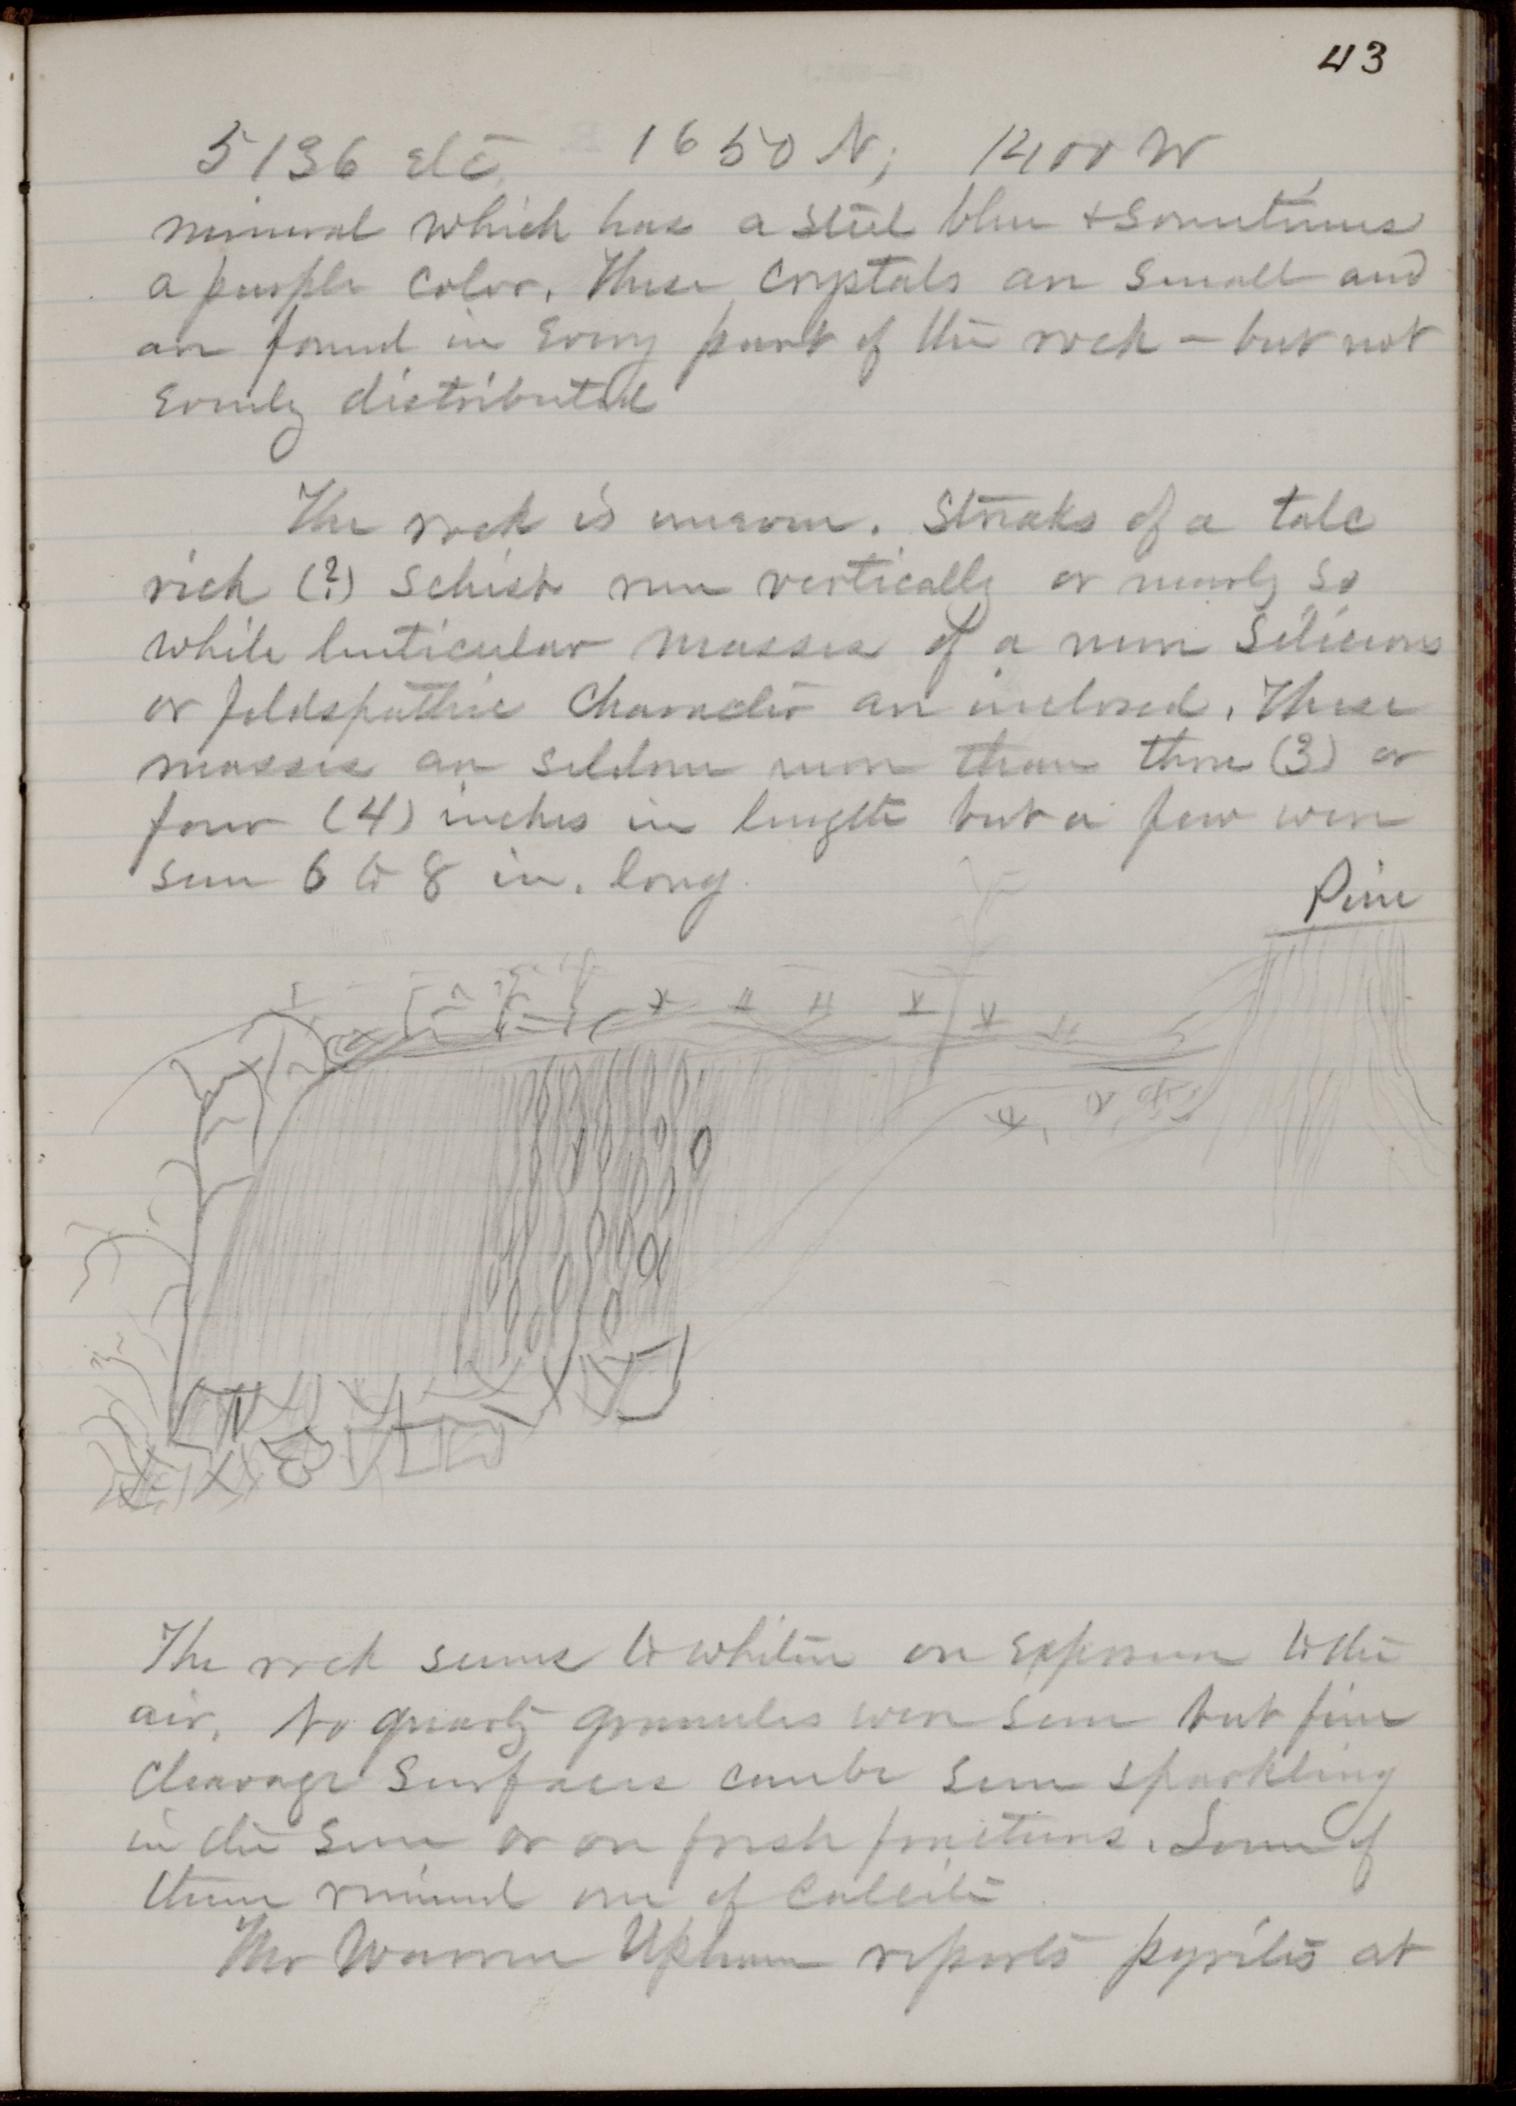 43
5136 etc. 1650 N; 1400 W
mineral which has a steel blue & sometimes
a purple color. These crystals are small and
are found in every part of the rock – but not
evenly distributed
The rock is uneven. Streaks of a talc
rich (?) schist run vertically or nearly so
while lenticular masses of a more silicious
or feldspathic character are inclosed. These
masses are seldom more than three (3) or
four (4) inches in length but a few were
seen 6 to 8 in. long.
Pine
The rock seems to whiten on exposure to the
air. No quartz granules were seen but fine
cleavage surfaces can be seen sparkling
in the sun or on fresh fractures. Some of
them remind one of calcite
Mr Warren Upham reports pyrites at